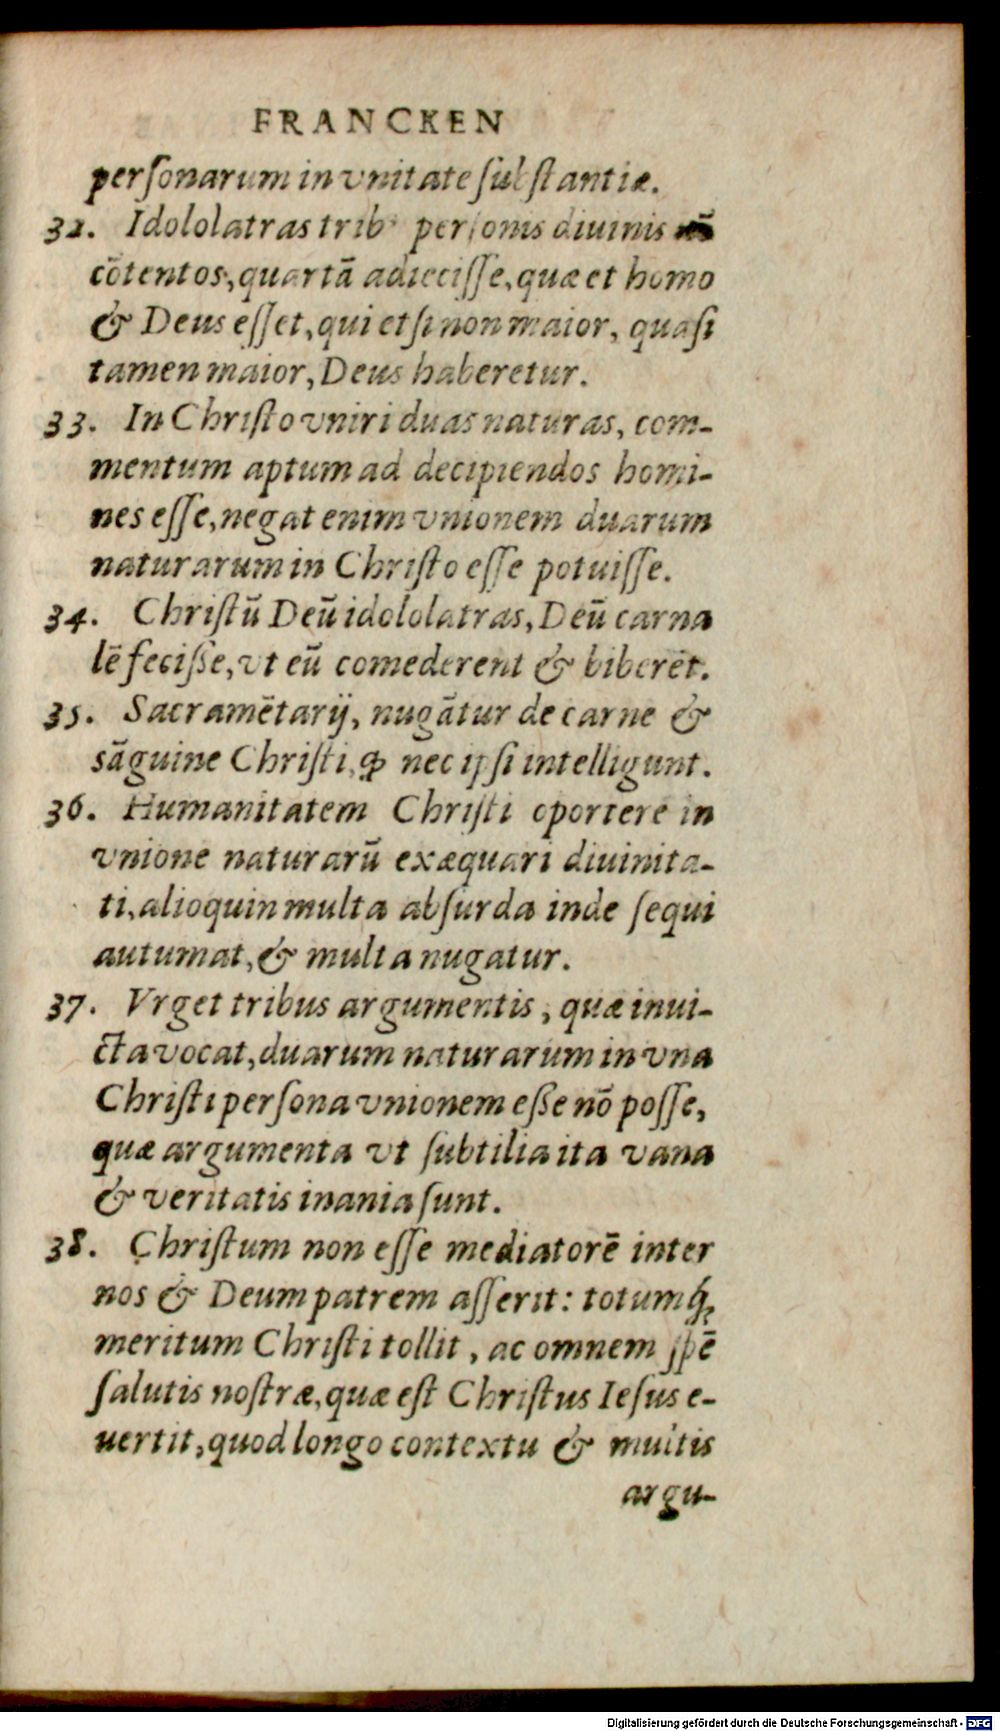 FRANCKEN
perſonarum in vnitate ſubſtantiæ.
32. Idololatras trib perſonis diuinis nō
cōtentos, quartā adieciſſe, quæ et homo
& Deus eſſet, qui etſi non maior, quaſi
tamen maior, Deus haberetur.
33. In Chriſto vniri duas naturas, com-
mentum aptum ad decipiendos homi-
nes eſſe, negat enim vnionem duarum
naturarum in Chriſto eſſe potuiſſe.
34. Chriſtū Deū idololatras, Deū carna
lē feciſſe, vt eū comederent & biberēt.
35. Sacramētarij, nugātur de carne &
sāguine Chriſti, ꝙ nec ipſi intelligunt.
36. Humanitatem Chriſti oportere in
vnione naturarū exæquari diuinita-
ti, alioquin multa abſurda inde ſequi
autumat, & multa nugatur.
37. Vrget tribus argumentis, quæ inui-
cta vocat, duarum naturarum in vna
Chriſti perſona vnionem eße nō poſſe,
quæ argumenta vt ſubtilia ita vana
& veritatis inania ſunt.
38. Chriſtum non eſſe mediatorē inter
nos & Deum patrem aſſerit: totumq́;
meritum Chriſti tollit, ac omnem ſpē
ſalutis noſtræ, quæ eſt Chriſtus Ieſus e-
uertit, quod longo contextu & multis
argu-
Digitalisierung gefördert durch die Deutsche Forschungsgemeinschaft - DFG